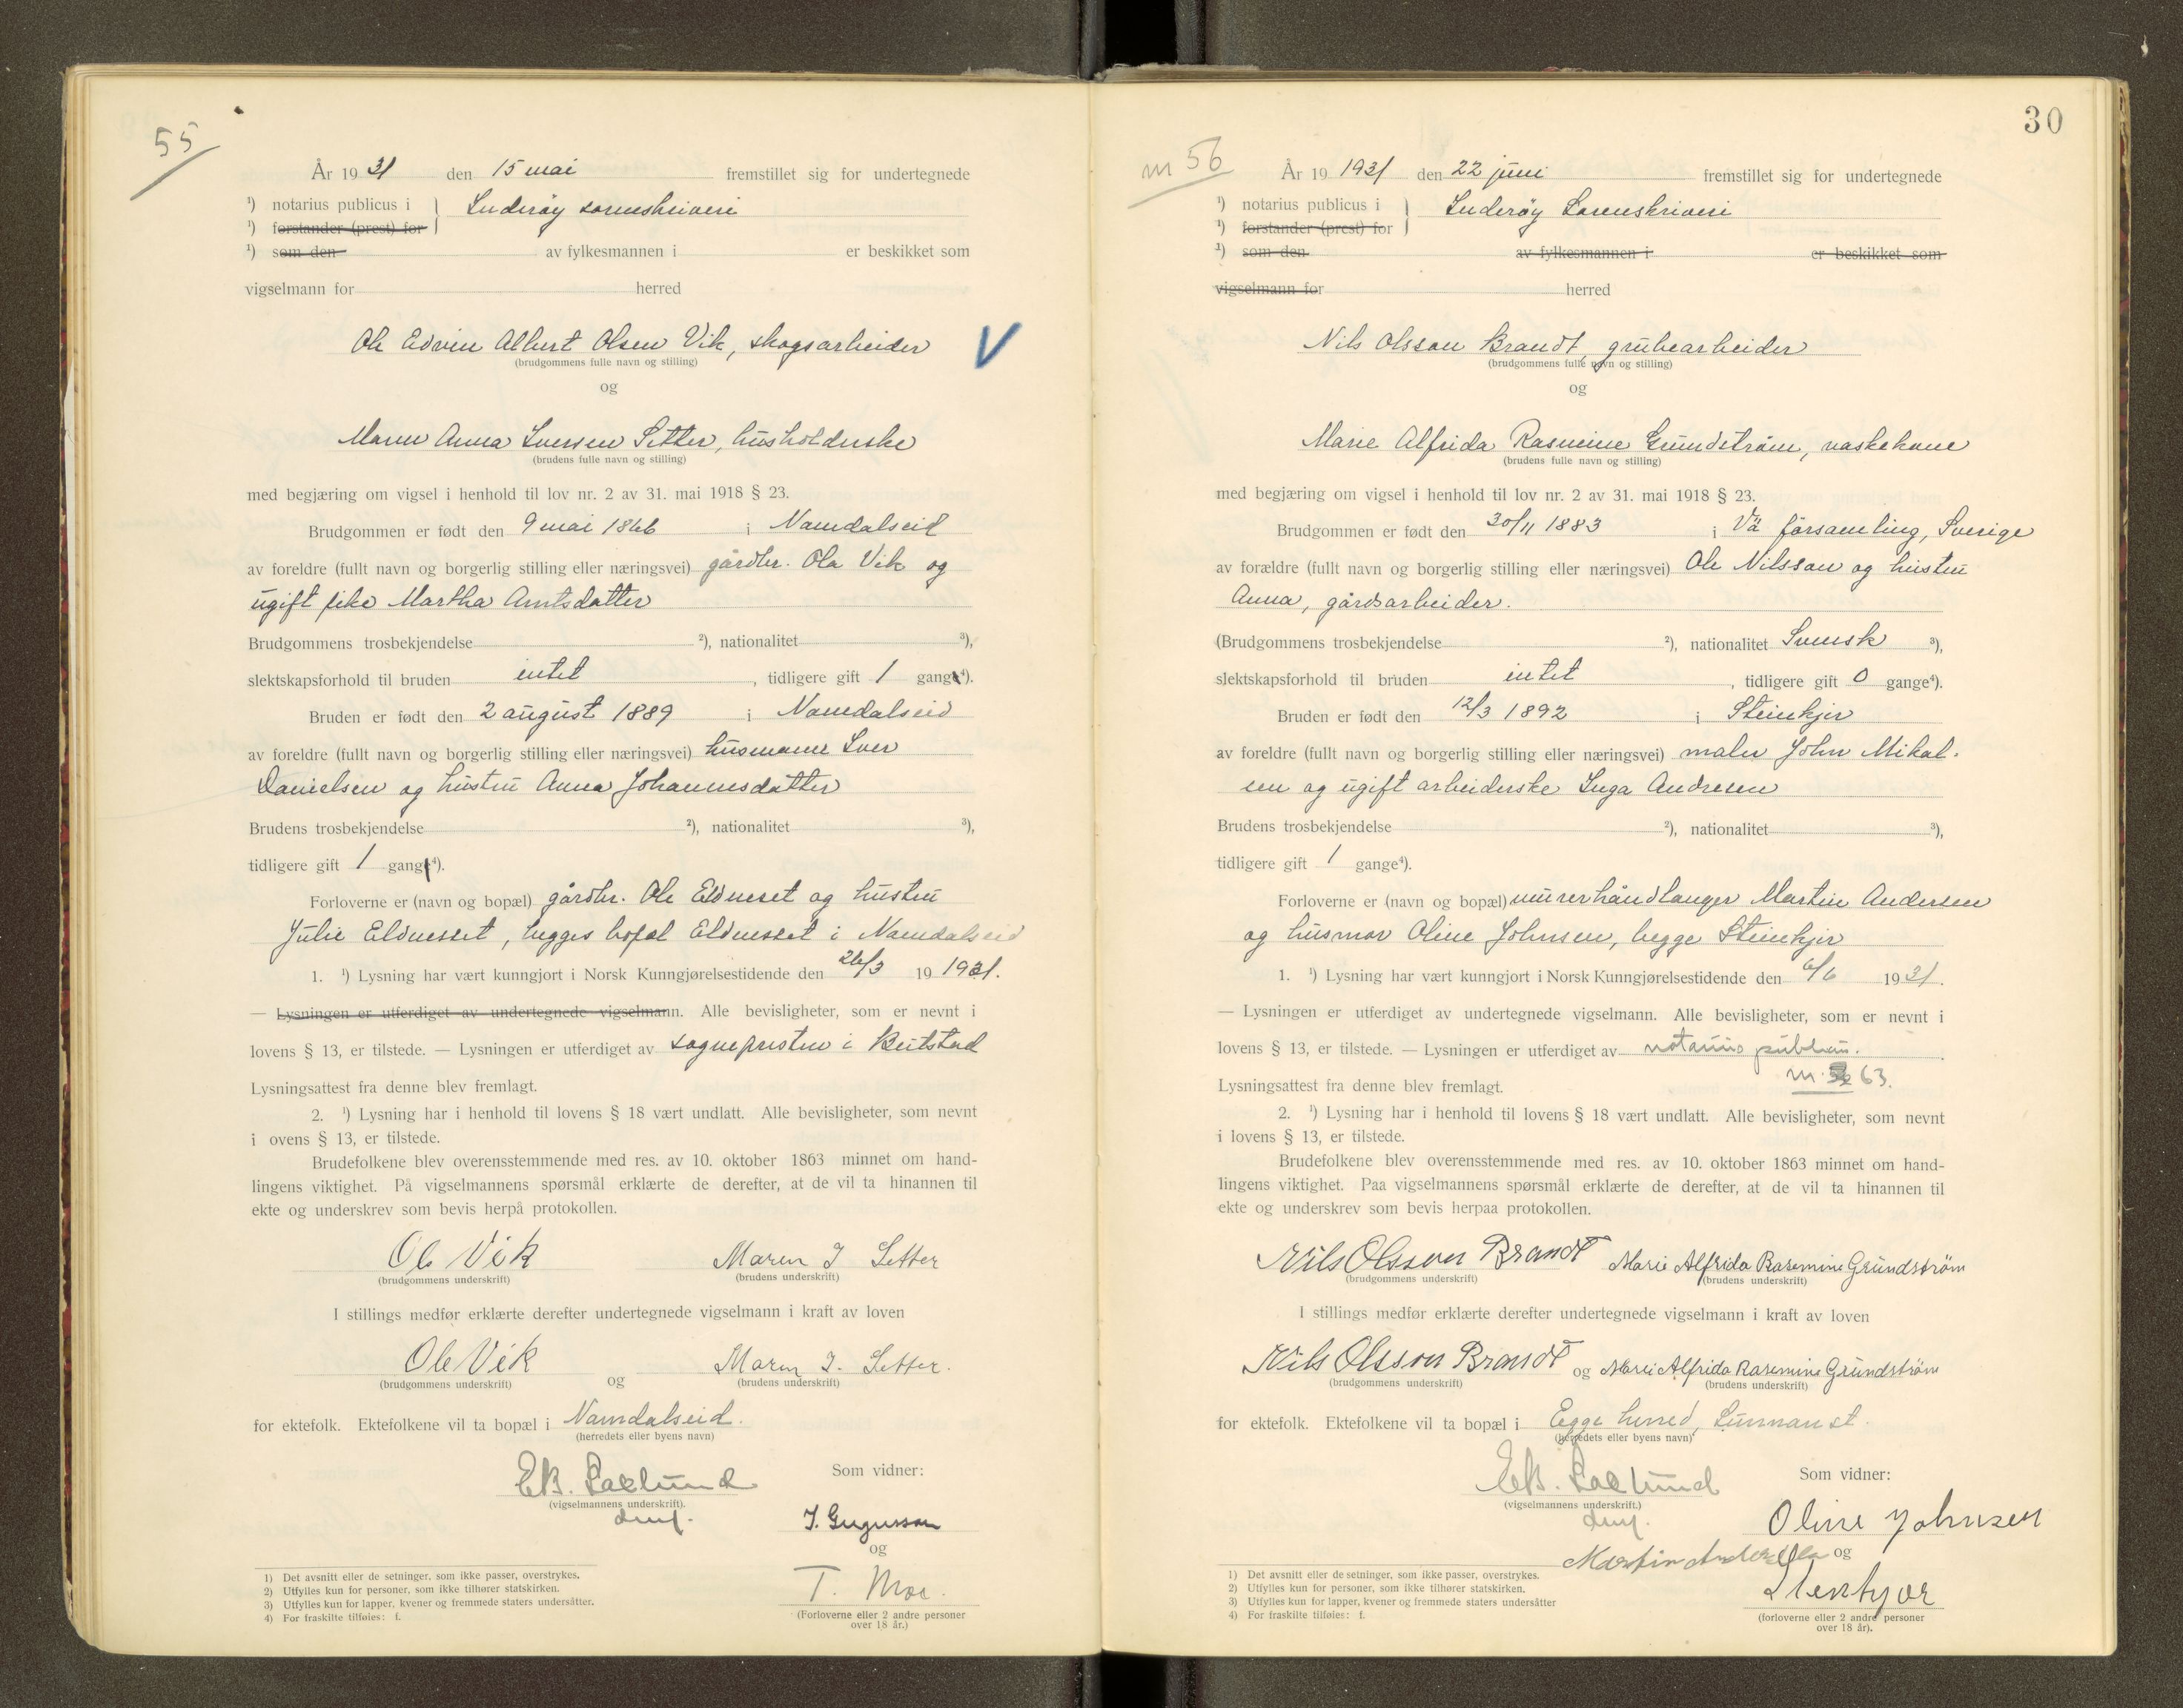 55
År 19 31 den 15 mai fremstillet sig for undertegnede
¹) notarius publicus i Inderøy sorenskriveri
¹) forstander (prest) for
¹) som den av fylkesmannen i er beskikket som
vigselmann for herred
Ole Edvin Albert Olsen Vik, skogsarbeider V
(brudgommens fulle navn og stilling)
og
Maren Anna Iversen Setter, husholderske
(brudens fulle navn og stilling)
med begjæring om vigsel i henhold til lov nr. 2 av 31. mai 1918 § 23.
Brudgommen er født den 9 mai 1866 i Namdalseid
av foreldre (fullt navn og borgerlig stilling eller næringsvei) gårdbr. Ola Vik og
ugift pike Martha Arntsdatter
Brudgommens trosbekjendelse ²), nationalitet ³),
slektskapsforhold til bruden intet , tidligere gift 1 gang⁴).
Bruden er født den 2 august 1889 i Namdalseid
av foreldre (fullt navn og borgerlig stilling eller næringsvei) husmann Iver
Danielsen og hustru Anna Johannesdatter
Brudens trosbekjendelse ²), nationalitet ³),
tidligere gift 1 gang⁴).
Forloverne er (navn og bopæl) gårdbr. Ole Eldnesset og hustru
Julie Eldnesset, begges bopæl Eldnesset i Namdalseid
1. ¹) Lysning har vært kunngjort i Norsk Kunngjørelsestidende den 26/3 19 1931.
— Lysningen er utferdiget av undertegnede vigselmann. Alle bevisligheter, som er nevnt i
lovens § 13, er tilstede. — Lysningen er utferdiget av sognepresten i Beitstad
Lysningsattest fra denne blev fremlagt.
2. ¹) Lysning har i henhold til lovens § 18 vært undlatt. Alle bevisligheter, som nevnt
i ovens § 13, er tilstede.
Brudefolkene blev overensstemmende med res. av 10. oktober 1863 minnet om hand-
lingens viktighet. På vigselmannens spørsmål erklærte de derefter, at de vil ta hinannen til
ekte og underskrev som bevis herpå protokollen.
Ole Vik Maren I Setter
(brudgommens underskrift) (brudens underskrift)
I stillings medfør erklærte derefter undertegnede vigselmann i kraft av loven
Ole Vik og Maren I. Setter.
(brudgommens underskrift) (brudens underskrift)
for ektefolk. Ektefolkene vil ta bopæl i Namdalseid.
(herredets eller byens navn)
Som vidner:
(vigselmannens underskrift).
og
T. Moe.
(Forloverne eller 2 andre personer
over 18 år.)
1) Det avsnitt eller de setninger, som ikke passer, overstrykes.
2) Utfylles kun for personer, som ikke tilhører statskirken.
3) Utfylles kun for lapper, kvener og fremmede staters undersåtter.
4) For fraskilte tilføies: f.
30
nr 56
År 19 1931 den 22 juni fremstillet sig for undertegnede
¹) notarius publicus i Inderøy Sorenskriveri
¹) forstander (prest) for
¹) som den av fylkesmannen i er beskikket som
vigselmann for herred
Nils Olsson Brandt, grubearbeider
(brudgommens fulle navn og stilling)
og
Marie Alfrida Rasmine Grundstrøm, vaskekone
(brudens fulle navn og stilling)
med begjæring om vigsel i henhold til lov nr. 2 av 31. mai 1918 § 23.
Brudgommen er født den 30/11 1883 i Vä församling, Sverige
av forældre (fullt navn og borgerlig stilling eller næringsvei) Ole Nilsson og hustru
Anna, gårdsarbeider.
(Brudgommens trosbekjendelse ²), nationalitet Svensk ³),
slektskapsforhold til bruden intet , tidligere gift 0 gange⁴).
Bruden er født den 12/3 1892 i Steinkjer
av foreldre (fullt navn og borgerlig stilling eller næringsvei) maler John Mikal-
sen og ugift arbeiderske Inga Andresen
Brudens trosbekjendelse ²), nationalitet ³),
tidligere gift 1 gange⁴).
Forloverne er (navn og bopæl) murerhåndlanger Martin Andersen
og husmor Oline Johnsen, begge Steinkjer
1. ¹) Lysning har vært kunngjort i Norsk Kunngjørelsestidende den 6/6 19 31.
— Lysningen er utferdiget av undertegnede vigselmann. Alle bevisligheter, som er nevnt i
lovens § 13, er tilstede. — Lysningen er utferdiget av notarius publicus.
Lysningsattest fra denne blev fremlagt. nr. 63.
2. ¹) Lysning har i henhold til lovens § 18 vært undlatt. Alle bevisligheter, som nevnt
i lovens § 13, er tilstede.
Brudefolkene blev overensstemmende med res. av 10. oktober 1863 minnet om hand-
lingens viktighet. Paa vigselmannens spørsmål erklærte de derefter, at de vil ta hinannen til
ekte og underskrev som bevis herpaa protokollen.
Nils Olsson Brandt Marie Alfrida Rasemine Grundstrøm
(brudgommens underskrift) (brudens underskrift)
I stillings medfør erklærte derefter undertegnede vigselmann i kraft av loven
Nils Olsson Brandt og Marie Alfrida Rasemine Grundstrøm
(brudgommens underskrift) (brudens underskrift)
for ektefolk. Ektefolkene vil ta bopæl i Egge herred, Sunnan st.
(herredets eller byens navn)
Som vidner:
(vigselmannens underskrift.)
Oline Johnsen
Martin Andersen og
Stenkjær
(forloverne eller 2 andre personer
over 18 år).
1) Det avsnitt eller de setninger, som ikke passer, overstrykes.
2) Utfylles kun for personer, som ikke tilhører statskirken.
3) Utfylles kun for lapper, kvener og fremmede staters undersåtter
4) For fraskilte tilføies: f.